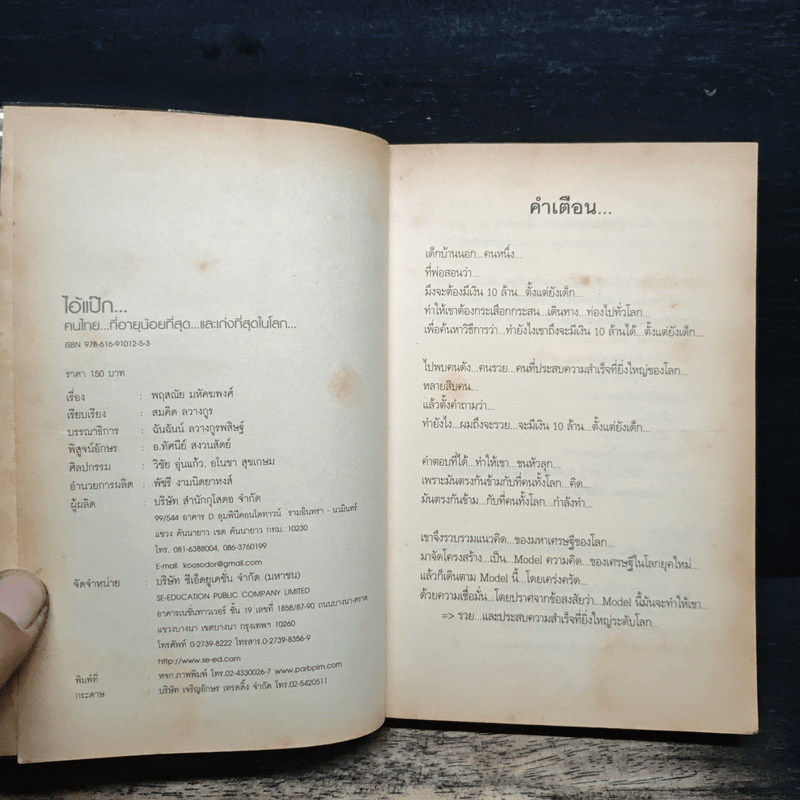 ไอ้แป๊ก...
คนไทย...ที่อายุน้อยที่สุด...และเก่งที่สุดในโลก...
ISBN 978-616-91012-5-3
ราคา 150 บาท
เรื่อง : พฤสณัย มหัคฆพงศ์
เรียบเรียง : สมคิด ลวางกูร
บรรณาธิการ : ฉันฉันน์ ลวางกูรพสิษฐ์
พิสูจน์อักษร : อ.ทัศนีย์ สงวนสัตย์
ศิลปกรรม : วิชัย อุ่นแก้ว, อโนชา สุขเกษม
อำนวยการผลิต : พัชรี งามนิตยาหงส์
ผู้ผลิต : บริษัท สำนักกุโสดอ จำกัด
99/544 อาคาร D ลุมพินีคอนโดทาวน์ รามอินทรา - นวมินทร์
แขวง คันนายาว เขต คันนายาว กทม. 10230
โทร. 081-6388004, 086-3760199
E-mail. koosodor@gmail.com
จัดจำหน่าย : บริษัท ซีเอ็ดยูเคชั่น จำกัด (มหาชน)
SE-EDUCATION PUBLIC COMPANY LIMITED
อาคารเนชั่นทาวเวอร์ ชั้น 19 เลขที่ 1858/87-90 ถนนบางนา-ตราด
แขวงบางนา เขตบางนา กรุงเทพฯ 10260
โทรศัพท์ 0-2739-8222 โทรสาร.0-2739-8356-9
http://www.se-ed.com
พิมพ์ที่ : หจก.ภาพพิมพ์ โทร.02-4330026-7 www.parbpim.com
กระดาษ : บริษัท เจริญอักษร เทรดดิ้ง จำกัด โทร.02-5420511
คำเตือน...
เด็กบ้านนอก...คนหนึ่ง...
ที่พ่อสอนว่า...
มึงจะต้องมีเงิน 10 ล้าน...ตั้งแต่ยังเด็ก...
ทำให้เขาต้องกระเสือกกระสน...เดินทาง...ท่องไปทั่วโลก...
เพื่อค้นหาวิธีการว่า...ทำยังไงเขาถึงจะมีเงิน 10 ล้านได้...ตั้งแต่ยังเด็ก...
ไปพบคนดัง...คนรวย...คนที่ประสบความสำเร็จที่ยิ่งใหญ่ของโลก...
หลายสิบคน...
แล้วตั้งคำถามว่า...
ทำยังไง...ผมถึงจะรวย...จะมีเงิน 10 ล้าน...ตั้งแต่ยังเด็ก...
คำตอบที่ได้...ทำให้เขา...ขนหัวลุก...
เพราะมันตรงกันข้ามกับที่คนทั้งโลก...คิด...
มันตรงกันข้าม...กับที่คนทั้งโลก...กำลังทำ...
เขาจึงรวบรวมแนวคิด...ของมหาเศรษฐีของโลก...
มาจัดโครงสร้าง...เป็น...Model ความคิด...ของเศรษฐีในโลกยุคใหม่...
แล้วก็เดินตาม Model นี้...โดยเคร่งครัด...
ด้วยความเชื่อมั่น...โดยปราศจากข้อสงสัยว่า...Model นี้มันจะทำให้เขา...
=> รวย...และประสบความสำเร็จที่ยิ่งใหญ่ระดับโลก...